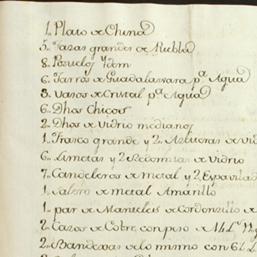 1. Plato de China
5. Tasas grandes de Puebla
8. Pozuelos ydem
6. Jarros de Guadalaxara pª Agua
3. Vasos de Cristal pª Agua
6. Dhos Chicos
2. Dhos de Vidrio mediano
1. Frasco grande y 2. de Vidrio
6. Limetas y 2 Redomitas de Vidrio
7. Candeleros de metal y 2 Espavilad
1. Salero de metal Amarillo
1. par de Manteles de Cordonzillo de
2. Cazos de Cobre, con peso de
2. de lo mismo con 6